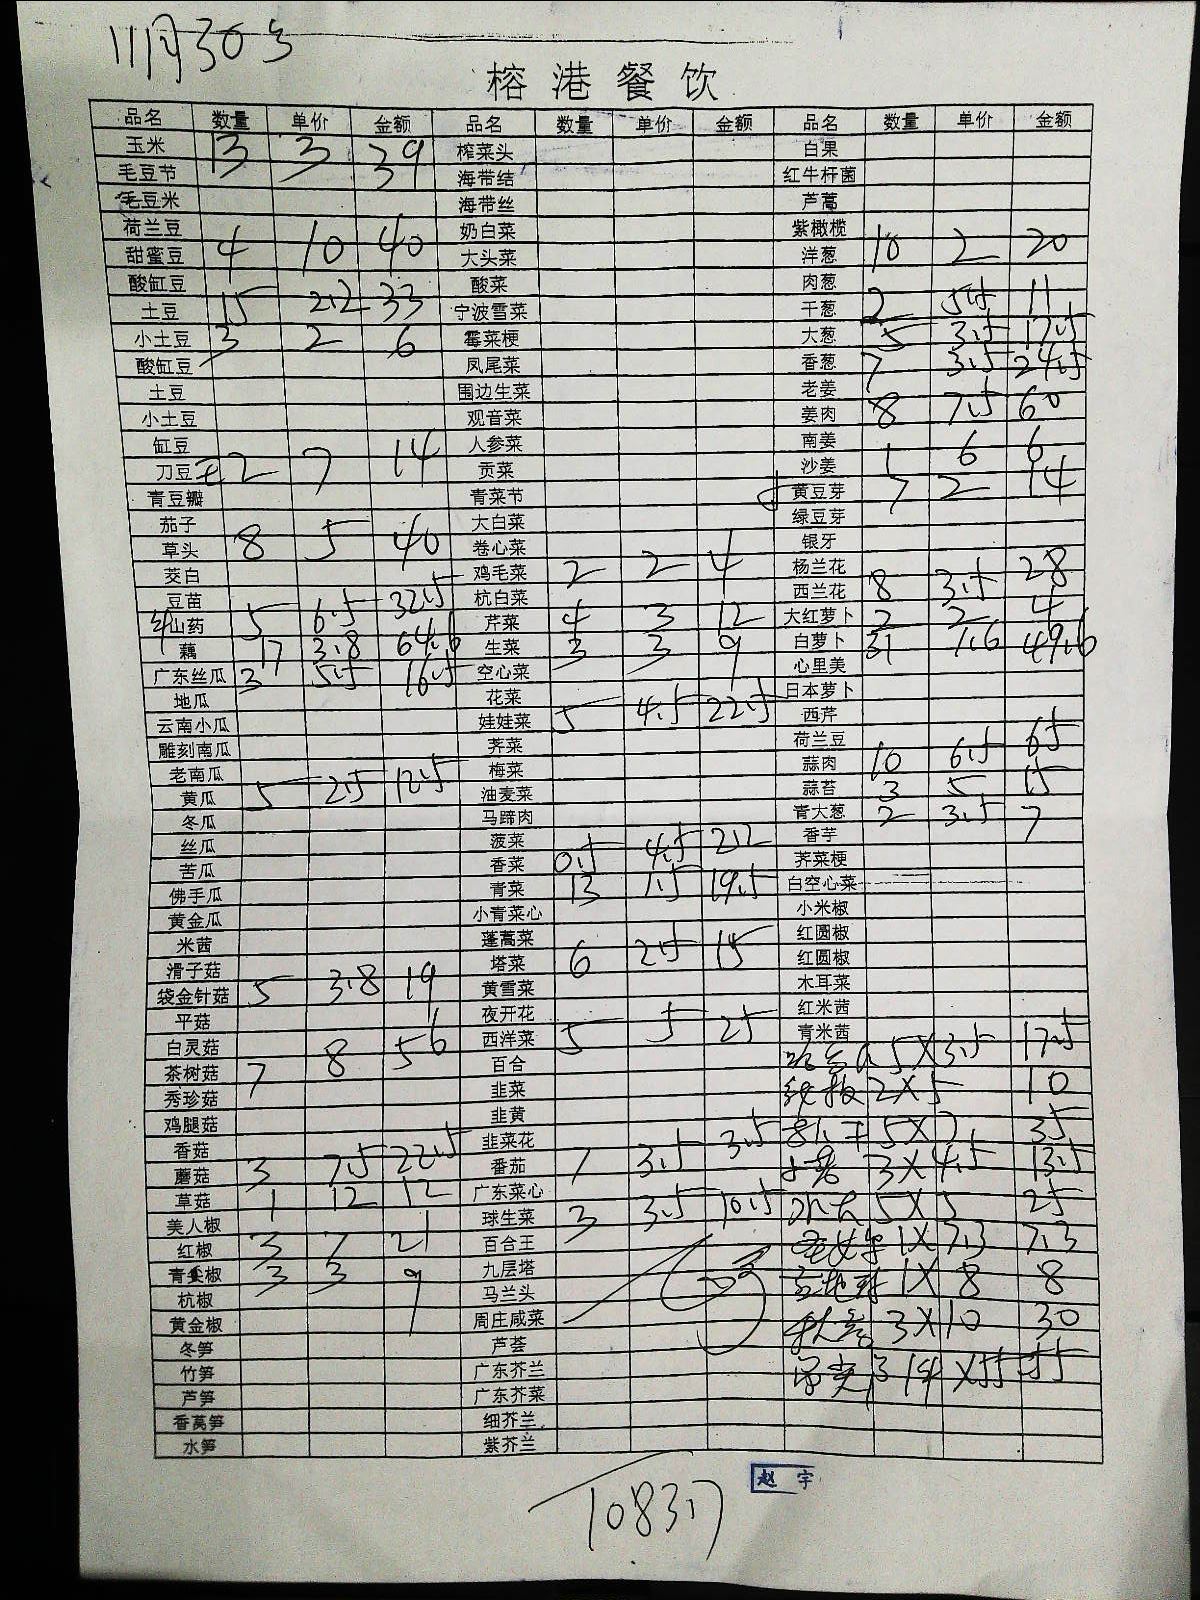 11月30号
榕港餐饮
品名 数量 单价 金额 品名 数量 单价 金额 品名 数量 单价 金额
玉米 13 3 39 榨菜头 白果
毛豆节 海带结 红牛杆菌
毛豆米 海带丝 芦蒿
荷兰豆 奶白菜 紫橄榄
甜蜜豆 4 10 40 大头菜 洋葱 10 2 20
酸缸豆 酸菜 肉葱
土豆 15 2.2 33 宁波雪菜 干葱 2 5.5 11
小土豆 3 2 6 霉菜梗 大葱 5 3.5 17.5
酸缸豆 凤尾菜 香葱 7 3.5 24.5
土豆 围边生菜 老姜
小土豆 观音菜 姜肉 8 7.5 60
缸豆 人参菜 南姜
刀豆 2 7 14 贡菜 沙姜 1 6 6
青豆瓣 青菜节 黄豆芽 7 2 14
茄子 大白菜 绿豆芽
草头 8 5 40 卷心菜 银牙
茭白 鸡毛菜 2 2 4 杨兰花
豆苗 杭白菜 西兰花 8 3.5 28
山药 5 6.5 32.5 芹菜 4 3 12 大红萝卜 2 2 4
藕 17 3.8 64.6 生菜 3 3 9 白萝卜 31 1.6 49.6
广东丝瓜 3 5.5 16.5 空心菜 心里美
地瓜 花菜 日本萝卜
云南小瓜 娃娃菜 5 4.5 22.5 西芹
雕刻南瓜 荠菜 荷兰豆
老南瓜 梅菜 蒜肉 10 6.5 65
黄瓜 5 2.5 12.5 油麦菜 蒜苔 3 5 15
冬瓜 马蹄肉 青大葱 2 3.5 7
丝瓜 菠菜 香芋
苦瓜 香菜 0.5 4.5 2.2 荠菜梗
佛手瓜 青菜 13 1.5 19.5 白空心菜
黄金瓜 小青菜心 小米椒
米茜 蓬蒿菜 红圆椒
滑子菇 塔菜 6 2.5 15 红圆椒
袋金针菇 5 3.8 19 黄雪菜 木耳菜
平菇 夜开花 红米茜
白灵菇 西洋菜 5 5 25 青米茜
茶树菇 7 8 56 百合 5X3.5 17.5
秀珍菇 韭菜 2X5 10
鸡腿菇 韭黄 5X7 35
香菇 韭菜花
蘑菇 3 7.5 22.5 番茄 1 3.5 3.5 3X4.5 13.5
草菇 1 12 12 广东菜心 5X5 25
美人椒 球生菜 3 3.5 10.5
红椒 3 7 21 百合王 1X7.3 7.3
青尖椒 3 3 9 九层塔 1X8 8
杭椒 马兰头
黄金椒 周庄咸菜 3X10 30
冬笋 芦荟
竹笋 广东芥兰
芦笋 广东芥菜
香莴笋 细芥兰
水笋 紫芥兰
赵宇
1083.7